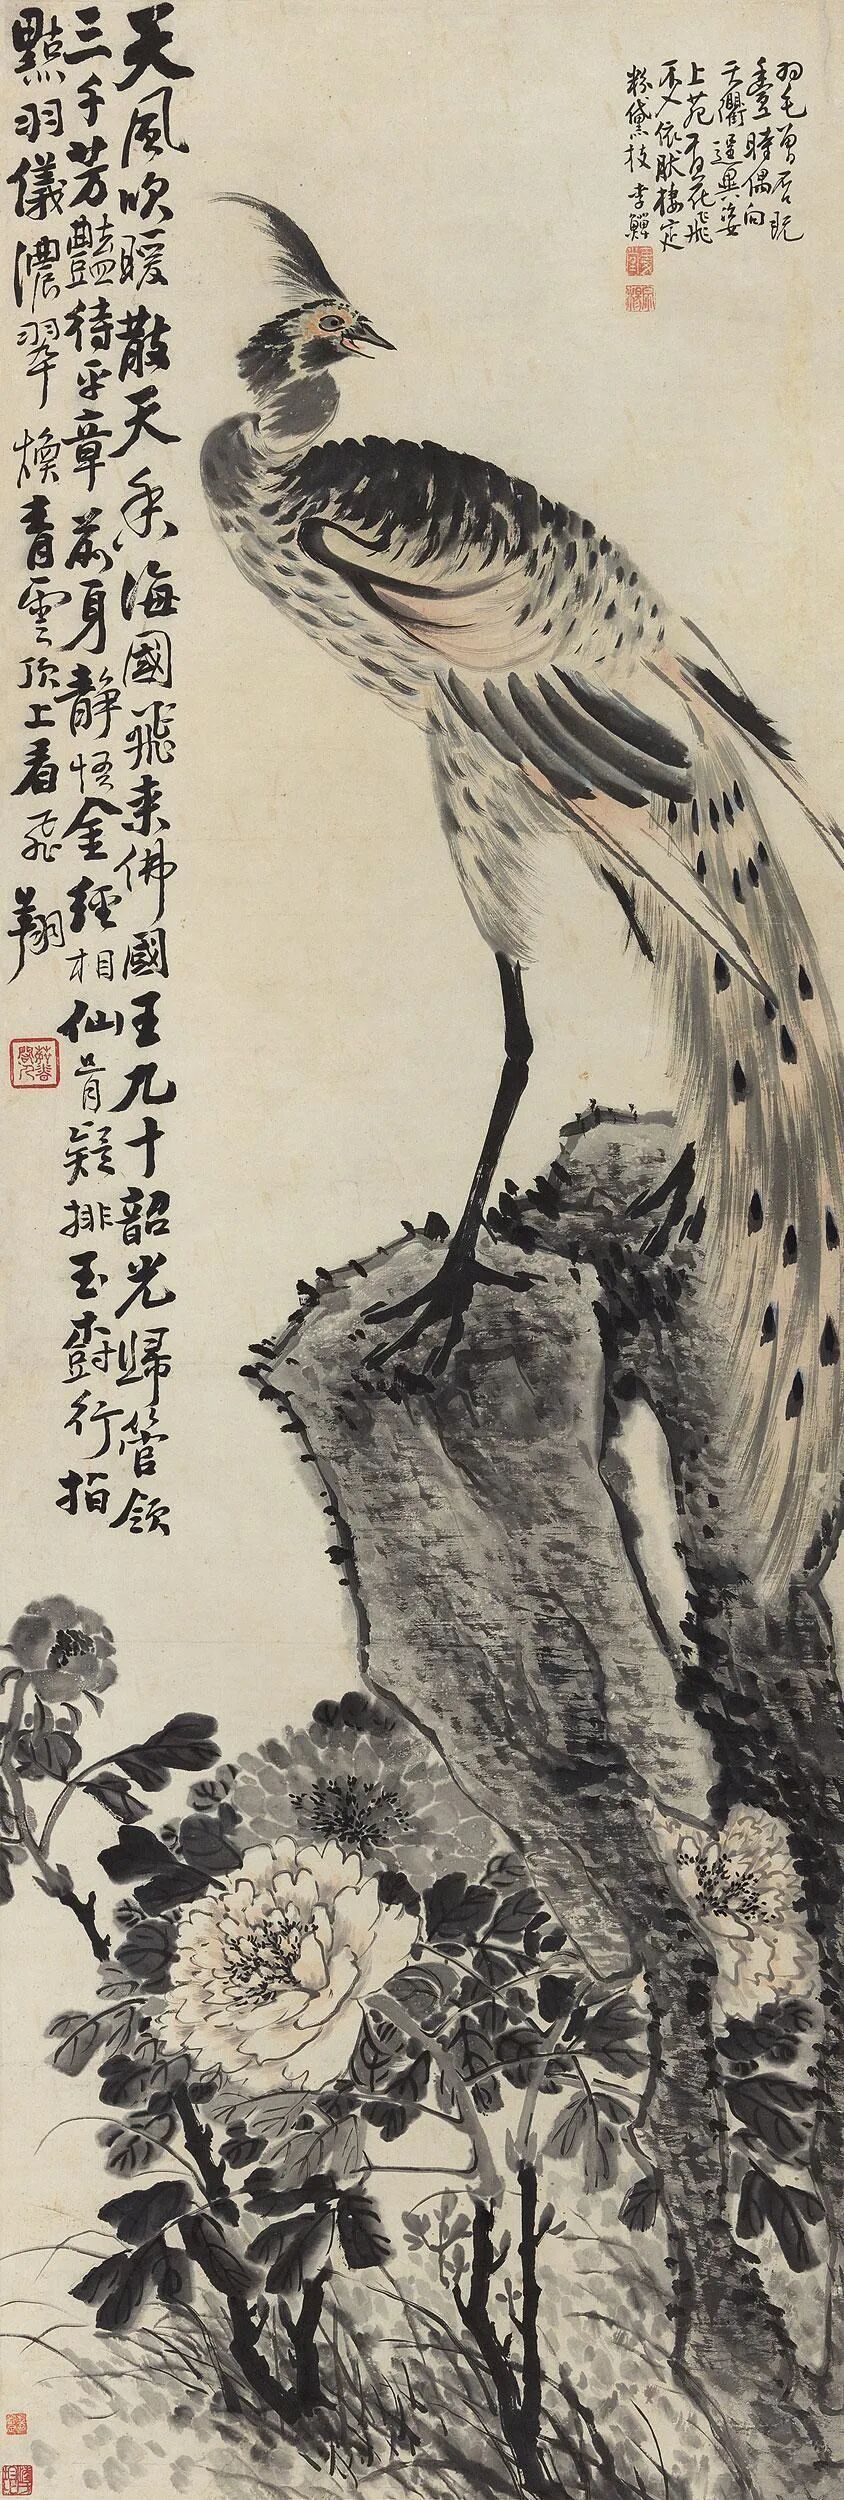 羽毛曾否既
豐時偶向
天衢逞異姿
上苑百花飛
不入依然棲定
粉黛枝 李鱓
天風吹暖散天香海國飛來佛國王九十韶光歸管領
三千芳豔待平章前身靜悟金經相仙骨疑排玉樹行拍
點羽儀濃翠煥青雲頂上看飛翔